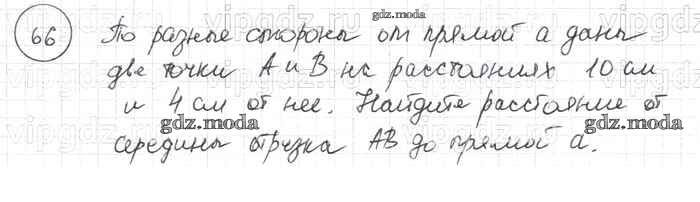 66 По разные стороны от прямой а даны
две точки А и В на расстояниях 10 см
и 4 см от нее. Найдите расстояние от
середины отрезка АВ до прямой а.
gdz.moda
gdz.moda
gdz.moda
gdz.moda
vipgdz.ru
vipgdz.ru
vipgdz.ru